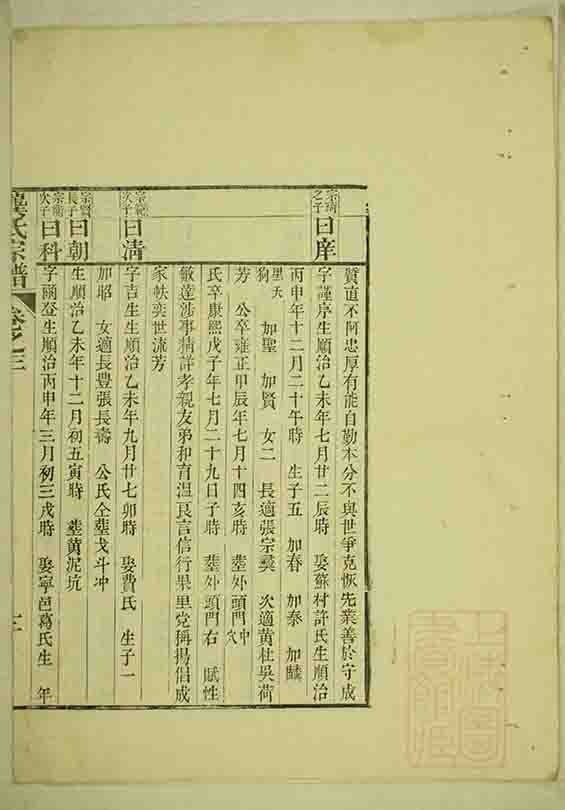 質直不阿忠厚有能自勤本分不與世爭克恢先業善於守成
宗琦之子
曰庠
字謹序生順治乙未年七月廿二辰時 娶蘇材許氏生順治
丙申年十二月二十午時 生子五 加春 加泰 加麟
星天狗 加聖 加賢 女二 長適張宗彞 次適黄杜吳荷
芳 公卒雍正甲辰年七月十四亥時 塟外頭門中穴
氏卒康熙戊子年七月二十九日子時 塟外頭門右 賦性
敏達涉事精詳孝親友弟和育温良言信行果里党稱揚倡成
家帙奕世流芳
次子
曰淸
字吉生生順治乙未年九月廿七卯時 娶費氏 生子一
加昭 女適長豊張長壽 公氏仝塟戈斗冲
宗賢長子
曰朝
生順治乙未年十二月初五寅時 塟黄泥坑
次子
曰科
字爾登生順治丙申年三月初三戌時 娶寧邑葛氏生 年
氏宗譜
卷之三
三
上海圖